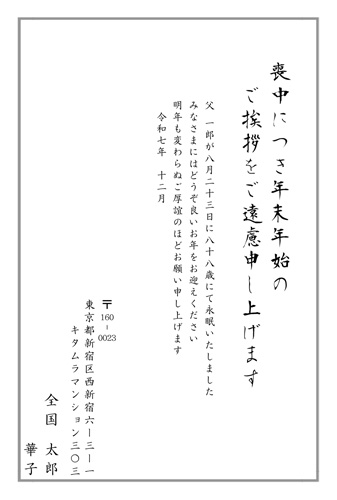 喪中につき年末年始の
ご挨拶をご遠慮申し上げます
父 一郎が八月二十三日に八十八歳にて永眠いたしました
みなさまにはどうぞ良いお年をお迎えください
明年も変わらぬご厚誼のほどお願い申し上げます
令和七年 十二月
〒160-0023
東京都新宿区西新宿六ー三ー一
キタムラマンション三〇三
全国 太郎
華子